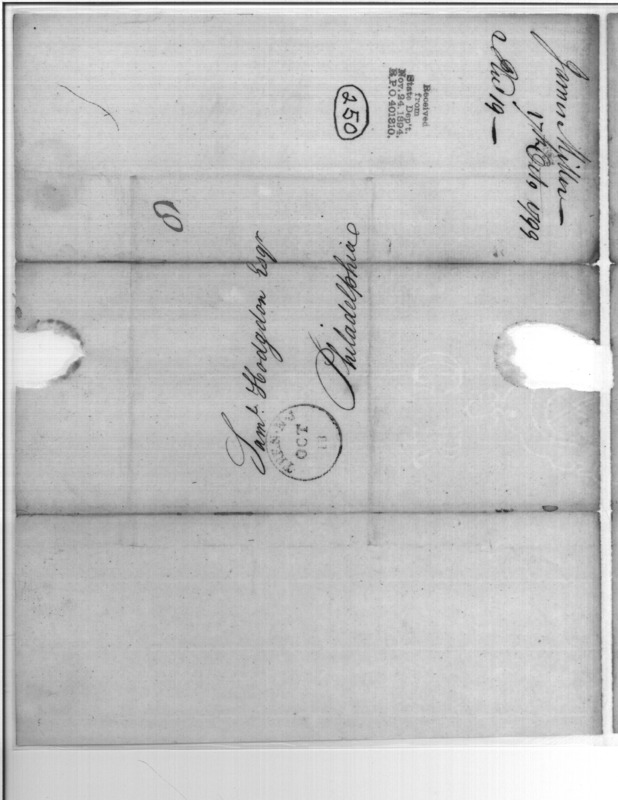 James Miller
17th Octo 1799
Received
from
State Dep't.
Nov. 24, 1894.
R.P.O. 401810.
250
Saml. Hodgdon Esqr
Philadelphia
OCT